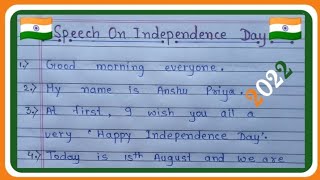 Speech On Independence Day
2022
1.) Good morning everyone.
2.) My name is Anshu Priya.
3.) At first, I wish you all a
very 'Happy Independence Day'.
4.) Today is 15th August and we are